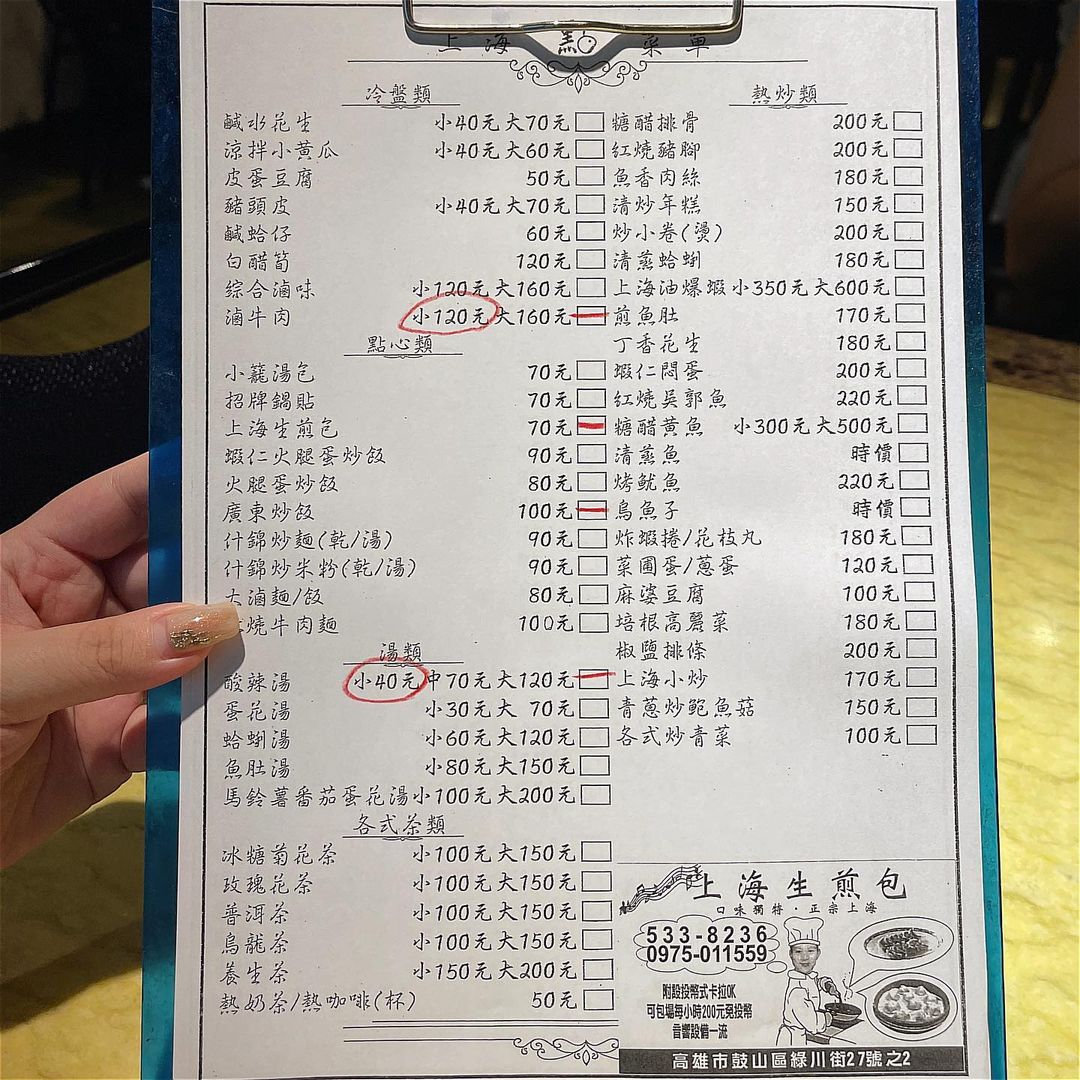 上海點菜單
冷盤類
鹹水花生 小40元大70元
涼拌小黃瓜 小40元大60元
皮蛋豆腐 50元
豬頭皮 小40元大70元
鹹蛤仔 60元
白醋筍 120元
綜合滷味 小120元大160元
滷牛肉 小120元大160元
點心類
小籠湯包 70元
招牌鍋貼 70元
上海生煎包 70元
蝦仁火腿蛋炒飯 90元
火腿蛋炒飯 80元
廣東炒飯 100元
什錦炒麵(乾/湯) 90元
什錦炒米粉(乾/湯) 90元
大滷麵/飯 80元
燒牛肉麵 100元
湯類
酸辣湯 小40元中70元大120元
蛋花湯 小30元大 70元
蛤蜊湯 小60元大120元
魚肚湯 小80元大150元
馬鈴薯番茄蛋花湯小100元大200元
各式茶類
冰糖菊花茶 小100元大150元
玫瑰花茶 小100元大150元
普洱茶 小100元大150元
烏龍茶 小100元大150元
養生茶 小150元大200元
熱奶茶/熱咖啡(杯) 50元
熱炒類
糖醋排骨 200元
紅燒豬腳 200元
魚香肉絲 180元
清炒年糕 150元
炒小卷(燙) 200元
清蒸蛤蜊 180元
上海油爆蝦小350元大600元
煎魚肚 170元
丁香花生 180元
蝦仁悶蛋 200元
紅燒吳郭魚 220元
糖醋黃魚 小300元大500元
清蒸魚 時價
烤魷魚 220元
烏魚子 時價
炸蝦捲/花枝丸 180元
菜圃蛋/蔥蛋 120元
麻婆豆腐 100元
培根高麗菜 180元
椒鹽排條 200元
上海小炒 170元
青蔥炒鮑魚菇 150元
各式炒青菜 100元
上海生煎包
口味獨特·正宗上海
533-8236
0975-011559
附設投幣式卡拉OK
可包場每小時200元免投幣
音響設備一流
高雄市鼓山區綠川街27號之2